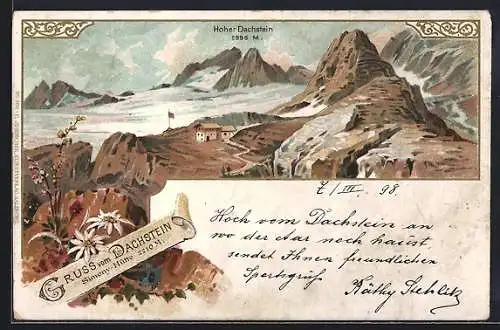 Hoher Dachstein
2996 M.
GRUSS vom DACHSTEIN
Simony-Hütte 2210 M.
7/III. 98.
Hoch vom Dachstein an
wo der Aar noch haust,
sendet Ihnen freundlichen
Sportsgruß
Käthy